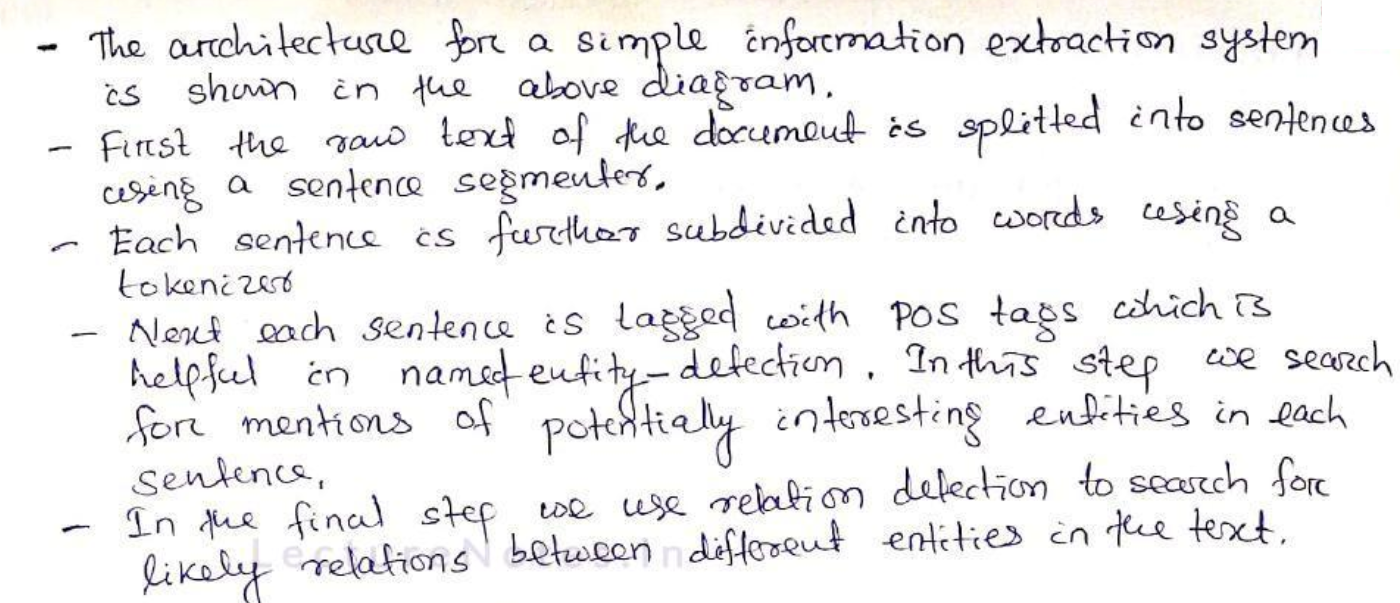 - The architecture for a simple information extraction system
is shown in the above diagram.
- First the raw text of the document is splitted into sentences
using a sentence segmenter.
- Each sentence is further subdivided into words using a
tokenizer
- Next each sentence is tagged with POS tags which is
helpful in named entity-detection. In this step we search
for mentions of potentially interesting entities in each
sentence.
- In the final step we use relation detection to search for
likely relations between different entities in the text.
LectureNotes.in